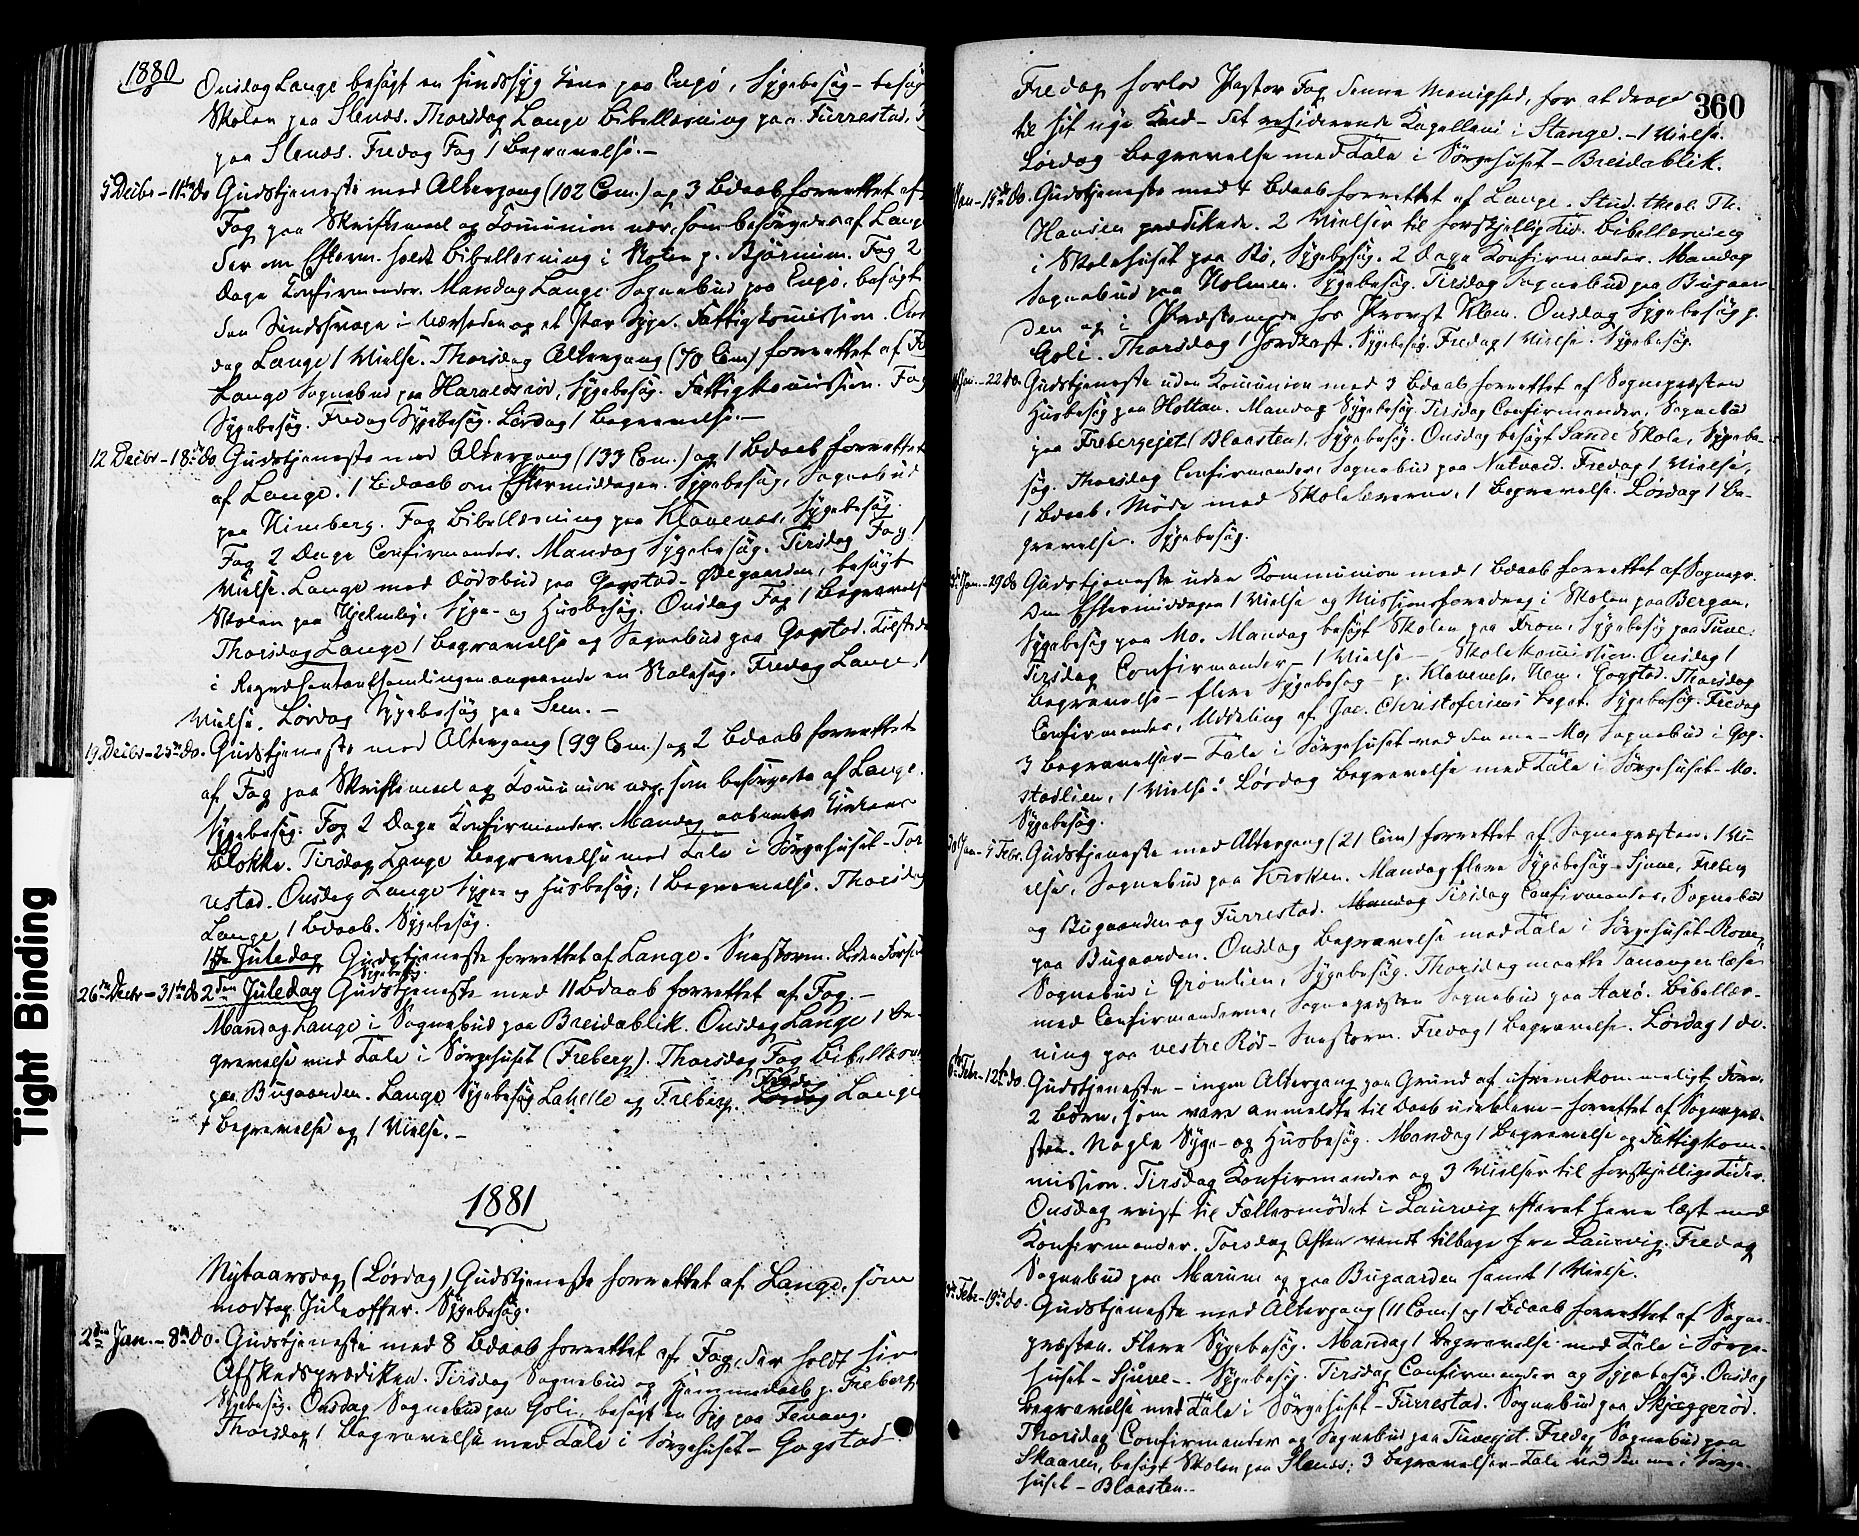 1880
Onsdag Lange besøgt en sindssyg Kone paa Engø, Sygebesøg – besøgt
Skolen paa Slenes. Thorsdag Lange Bibellæsning paa Furrestad,
paa Slenes. Fredag Fog 1 Begravelse. –
5 Decbr – 11te do Gudstjeneste med Altergang (102 Com.) og 3 Bdaab forrettet af
Fog paa Skriftemaal og Communion nær, som besörgedes af Lange
der om Efterm. holdt Bibellæsning i Skolen p. Bjørnum. Fog 2
Dage Confirmander. Mandag Lange Sognebud paa Engø, besøgt
den Sindssvage i Nærheden og et Par Syge. Fattigkomission. Ons
dag Lange 1 Vielse. Thorsdag Altergang (70 Com) forrettet af Fog
Lange Sognebud paa Haraldsrød, Sygebesøg. Fattigkomission. Fog
Sygebesøg. Fredag Sygebesøg. Lørdag 1 Begravelse. –
12 Decbr – 18de do Gudstjeneste med Altergang (133 Com.) og 1 Bdaab forrettet
af Lange. 1 Bdaab om Eftermiddagen. Sygebesøg, Sognebud
paa Virnberg. Fog Bibellæsning paa Klavenes, Sygebesøg.
Fog 2 Dage Confirmander. Mandag Sygebesøg. Tirsdag Fog 1
Vielse. Lange med Dødsbud paa Gogstad – Ødegaarden, besøgt
Skolen paa Hjelmby, Syge- og Husbesøg. Onsdag Fog 1 Begravelse
Thorsdag Lange 1 Begravelse og Sognebud paa Gogstad. Tilstede
i Repræsentantsamlingen angaaende en Skolesag. Fredag Lange 1
Vielse. Lørdag Sygebesøg paa Sem. –
19 Decbr – 25de do. Gudstjeneste med Altergang (99 Com.) og 2 Bdaab forrettet
af Fog paa Skriftemaal og Communion nær, som besørgedes af Lange.
Sygebesøg. Fog 2 Dage Konfirmander. Mandag aabnedes Kirkens
Blokke. Tirsdag Lange Begravelse med Tale i Sørgehuset – Fur
restad. Onsdag Lange Syge- og Husbesøg; 1 Begravelse. Thorsdag
Lange 1 Bdaab. Sygebesøg.
1ste Juledag Gudstjeneste forrettet af Lange. Snestorm.
Sygebesøg.
26de Decbr – 31te do 2den Juledag Gudstjeneste med 11 Bdaab forrettet af Fog. –
Mandag Lange i Sognebud paa Breidablik. Onsdag Lange 1 Be-
gravelse med Tale i Sørgehuset (Freberg). Thorsdag Fog Bibellæsn
paa Bugaarden. Lange Sygebesøg Lahelle og Freberg. Fredag Lange
1 Begravelse og 1 Vielse. –
1881
Nytaarsdag (Lørdag) Gudstjeneste forrettet af Lange, som
modtog Juleoffer. Sygebesøg.
2den Jan. – 8de do. Gudstjeneste med 8 Bdaab forrettet af Fog, der holdt sin
Afskedsprædiken. Tirsdag Sognebud og Hjemmedaab p. Freberg
Sygebesøg. Onsdag Sognebud paa Goli, besøgt en Syg paa Fevang.
Thorsdag 1 Begravelse med Tale i Sørgehuset – Gogstad.
360
Fredag forlod Pastor Fog denne Menighed, for at drage
til sit nye Kald – det residerende Kapellani i Stange. – 1 Vielse.
Lørdag Begravelse med Tale i Sørgehuset – Breidablik.
Jan – 15de do. Gudstjeneste med 4 Bdaab forrettet af Lange. Stud. theol. Th.
Hansen prædikede. 2 Vielser til forskjellig Tid. Bibellæsning
i Skolehuset paa Bø, Sygebesøg. 2 Dage Konfirmander. Mandag
Sognebud paa Holmen. Sygebesøg. Tirsdag Sognebud paa Bugaar
den og i Præstemøde hos Provst Klem. Onsdag Sygebesøg p.
Goli. Thorsdag 1 Jordkast. Sygebesøg. Fredag 1 Vielse. Sygebesøg.
Jan. – 22 do. Gudstjeneste uden Kommunion med 3 Bdaab forrettet af Sognepræsten
Husbesøg paa Holtan. Mandag Sygebesøg. Tirsdag Confirmander, Sognebud
paa Frebergejet (Blaasten), Sygebesøg. Onsdag besøgt Sande Skole, Sygebe-
søg. Thorsdag Confirmander, Sognebud paa Natvad. Fredag 1 Vielse,
1 Bdaab, Møde med Skolelærerne, 1 Begravelse. Lørdag 1 Be-
gravelse. Sygebesøg.
Jan. – 29 do Gudstjeneste uden Kommunion med 1 Bdaab forrettet af Sognepr.
Om Eftermiddagen 1 Vielse og Missionsforedrag i Skolen paa Bergan.
Sygebesøg paa Mo. Mandag besøgt Skolen paa From, Sygebesøg paa Tuve.
Tirsdag Confirmander – 1 Vielse – Skolekomission. Onsdag 1
Begravelse – flere Sygebesøg – p. Klavenes, Hem, Gogstad. Thorsdag
Confirmander, Uddeling af Jac. Christofersens Legat. Sygebesøg. Fredag
3 Begravelser – Tale i Sørgehuset ved den ene – Mo, Sognebud i Gog-
stadlien, 1 Vielse. Lørdag Begravelse med Tale i Sørgehuset – Mo.
Sygebesøg.
30 Jan – 5 Febr. Gudstjeneste med Altergang (21 Com) forrettet af Sognepræsten. 1 Vi-
else, Sognebud paa Krokken. Mandag flere Sygebesøg – Sjuve, Freberg
og Bugaarden og Furrestad. Tirsdag Confirmander, Sognebud
paa Bugaarden. Onsdag Begravelse med Tale i Sørgehuset – Rove,
Sognebud i Grønlien, Sygebesøg. Thorsdag maatte læse
med Confirmanderne, Sognepræsten Sognebud paa Aarø. Bibellæs-
ning paa vestre Rød – Snestorm. Fredag 1 Begravelse. Lørdag 1 do.
6te Febr. – 12te do. Gudstjeneste – ingen Altergang paa Grund af ufremkommeligt Føre.
2 Børn, som vare anmeldte til Daab udebleve – forrettet af Sognepræ-
sten. Nogle Syge- og Husbesøg. Mandag 1 Begravelse og Fattigkom-
mission. Tirsdag Konfirmander og 3 Vielser til forskjellige Tider.
Onsdag reist til Fællesmødet i Laurvig efterat have læst med
Konfirmander. Torsdag Aften vendt tilbage fra Laurvig. Fredag
Sognebud paa Marum og paa Bugaarden samt 1 Vielse.
Febr. – 19de do. Gudstjeneste med Altergang (11 Com.) og 1 Bdaab forrettet af Sogne-
præsten. Flere Sygebesøg. Mandag 1 Begravelse med Tale i Sørge-
huset – Sjuve –. Sygebesøg. Tirsdag Confirmander og Sygebesøg. Onsdag
Begravelse med Tale i Sørgehuset – Furrestad. Sognebud paa Skjæggerød.
Thorsdag Confirmander og Sognebud paa Tuvejet. Fredag Sognebud paa
Skaaren, besøgt Skolen paa Slenes; 3 Begravelser – Tale ved den ene i Sørge-
huset – Blaasten. –
Tight Binding